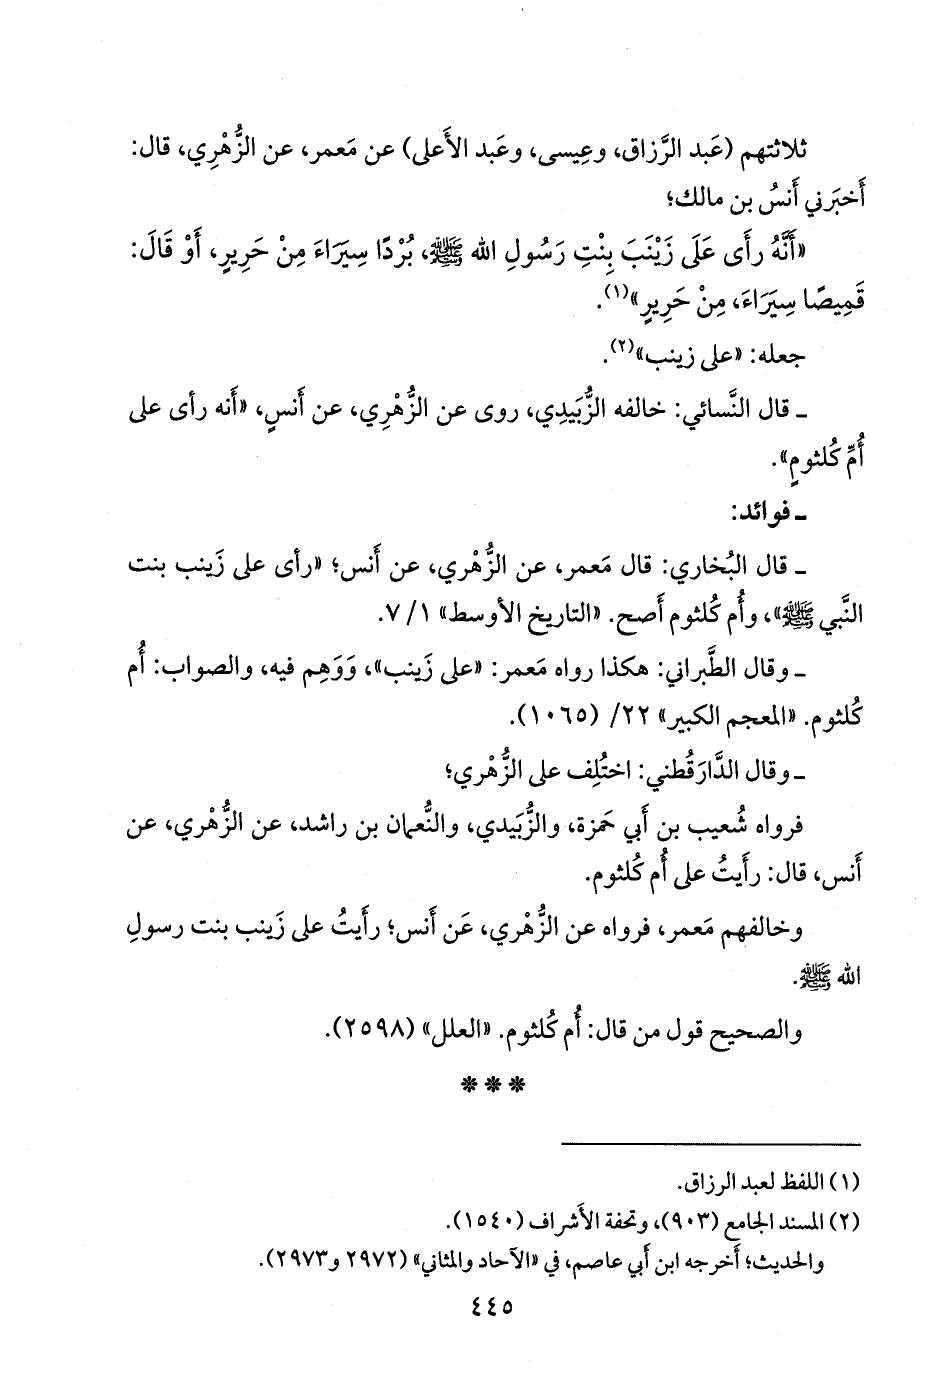 ثلاثتهم (عَبد الرَّزاق، وعِيسى، وعَبد الأَعلى) عن مَعمر، عن الزُّهْرِي، قال:
أَخبَرني أَنسُ بن مالك؛
«أَنَّهُ رأَى عَلَى زَيْنَبَ بِنْتِ رَسُولِ الله ﷺ، بُرْدًا سِيَرَاءَ مِنْ حَرِيرٍ، أَوْ قَالَ:
قَمِيصًا سِيَرَاءَ، مِنْ حَرِيرٍ»(١).
جعله: «على زينب»(٢).
ـ قال النَّسائي: خالفه الزُّبَيدِي، روى عن الزُّهْرِي، عن أَنسٍ، «أَنه رأَى على
أُمِّ كُلثومٍ».
ـ فوائد:
ـ قال البُخاري: قال مَعمر، عن الزُّهْري، عن أَنس؛ «رأَى على زَينب بنت
النَّبي ﷺ»، وأُم كُلثوم أَصح. «التاريخ الأوسط» ١/ ٧.
ـ وقال الطَّبراني: هكذا رواه مَعمر: «على زَينب»، وَوَهِم فيه، والصواب: أُم
كُلثوم. «المعجم الكبير» ٢٢/ (١٠٦٥).
ـ وقال الدَّارَقُطني: اختُلِف على الزُّهْري؛
فرواه شُعيب بن أَبي حَمزة، والزُّبَيدي، والنُّعمان بن راشد، عن الزُّهْري، عن
أَنس، قال: رأَيتُ على أُم كُلثوم.
وخالفهم مَعمر، فرواه عن الزُّهْري، عَن أَنس؛ رأَيتُ على زَينب بنت رسولِ
الله ﷺ.
والصحيح قول من قال: أُم كُلثوم. «العلل» (٢٥٩٨).
* * *
(١) اللفظ لعبد الرزاق.
(٢) المسند الجامع (٩٠٣)، وتحفة الأَشراف (١٥٤٠).
والحديث؛ أَخرجه ابن أَبي عاصم، في «الآحاد والمثاني» (٢٩٧٢ و٢٩٧٣).
٤٤٥